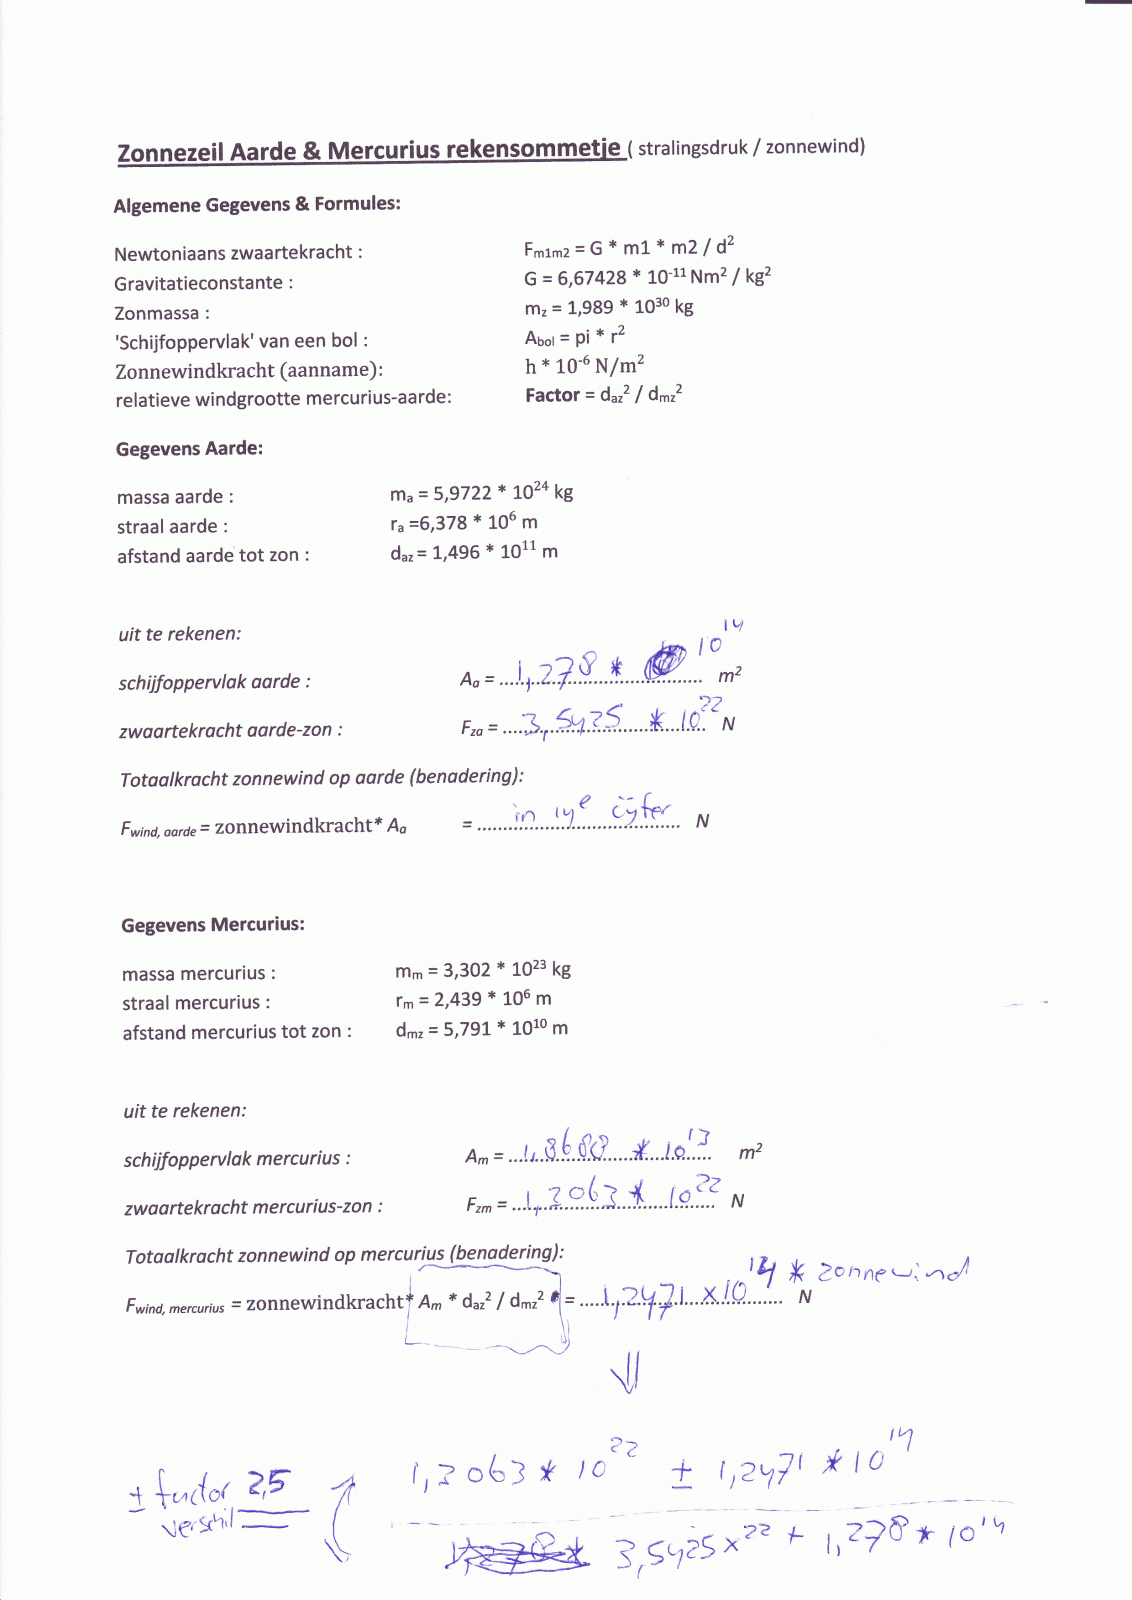 Zonnezeil Aarde & Mercurius rekensommetje ( stralingsdruk / zonnewind)
Algemene Gegevens & Formules:
Newtoniaans zwaartekracht : Fm1m2 = G * m1 * m2 / d²
Gravitatieconstante : G = 6,67428 * 10⁻¹¹ Nm² / kg²
Zonmassa : mz = 1,989 * 10³⁰ kg
'Schijfoppervlak' van een bol : Abol = pi * r²
Zonnewindkracht (aanname): h * 10⁻⁶ N/m²
relatieve windgrootte mercurius-aarde: Factor = daz² / dmz²
Gegevens Aarde:
massa aarde : ma = 5,9722 * 10²⁴ kg
straal aarde : ra =6,378 * 10⁶ m
afstand aarde tot zon : daz = 1,496 * 10¹¹ m
uit te rekenen:
schijfoppervlak aarde : Aa = 1,278 * 10¹⁴ m²
zwaartekracht aarde-zon : Fza = 3,5425 * 10²² N
Totaalkracht zonnewind op aarde (benadering):
Fwind, aarde = zonnewindkracht* Aa = in 14e cijfer N
Gegevens Mercurius:
massa mercurius : mm = 3,302 * 10²³ kg
straal mercurius : rm = 2,439 * 10⁶ m
afstand mercurius tot zon : dmz = 5,791 * 10¹⁰ m
uit te rekenen:
schijfoppervlak mercurius : Am = 1,8688 * 10¹³ m²
zwaartekracht mercurius-zon : Fzm = 1,3063 * 10²² N
Totaalkracht zonnewind op mercurius (benadering):
Fwind, mercurius = zonnewindkracht* Am * daz² / dmz² = 1,2471 x 10¹⁴ * zonnewind N
⇓
1,3063 * 10²² ± 1,2471 * 10¹⁴
± factor 2,5
verschil
3,5425 x²² + 1,278 * 10¹⁴